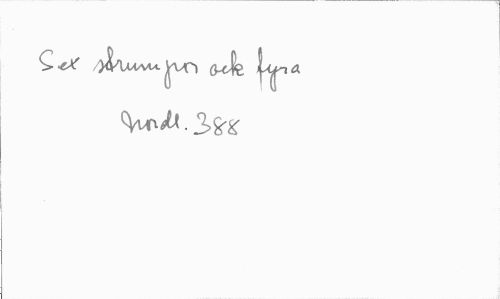 Sex strumpor ock fyra
Nordl. 388